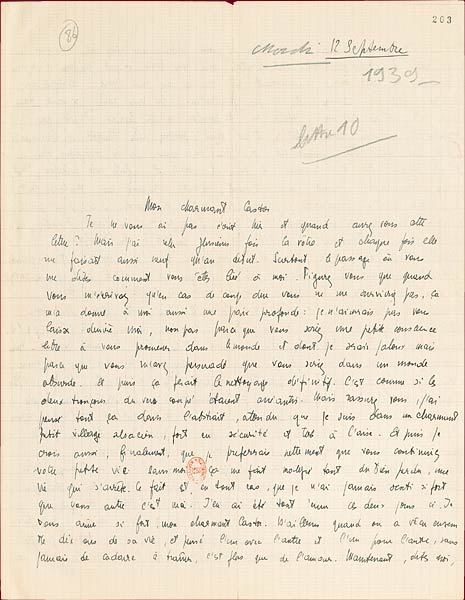 203
86
Mardi 12 Septembre
1939
lettre 10
Mon charmant Castor
Je ne vous ai pas écrit hier et quand aurez vous cette
lettre? Mais j'ai relu plusieurs fois la vôtre et chaque fois elle
me faisait aussi neuf qu'au début. Surtout le passage où vous
me dites comment vous êtes liée à moi. Figurez vous que quand
vous m'écrivez qu'en cas de coup dur vous ne me survivriez pas, ça
m'a donné à moi aussi une paix profonde: je n'aimerais pas vous
laisser derrière moi, non pas parce que vous seriez une petite conscience
libre à vous promener dans le monde et dont je serais jaloux mais
parce que vous m'avez persuadé que vous seriez dans un monde
absurde. Et puis ça ferait le nettoyage définitif. C'est comme si les
deux tronçons du ver coupé étaient anéantis. Mais rassurez vous, j'ai
pensé tout ça dans l'abstrait, attendu que je suis dans un charmant
petit village alsacien, fort en sécurité et tout à l'aise. Et puis je
crois aussi, finalement, que je préférerais nettement que vous continuiez
votre petite vie sans moi: ça me fait malgré tout du bien perdu, une
vie qui s'arrête. Le fait est en tout cas, que je n'ai jamais senti si fort
que vous autre c'est moi. J'en ai été tout ému ces deux jours ci. Je
vous aime si fort, mon charmant Castor. D'ailleurs quand on a vécu ensem
ble dix ans de sa vie, et pensé l'un avec l'autre et l'un pour l'autre, sans
jamais de cadavre à traîner, c'est plus que de l'amour. Maintenant, dites moi,